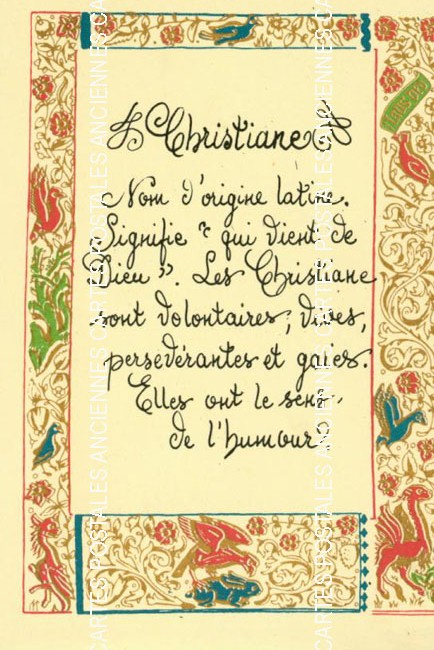 Christiane
Nom d'origine latine.
Signifie " qui vient de
Dieu ". Les Christiane
sont volontaires, vives,
persévérantes et gaies.
Elles ont le sens
de l'humour
CARTES POSTALES ANCIENNES
CARTES POSTALES ANCIENNES